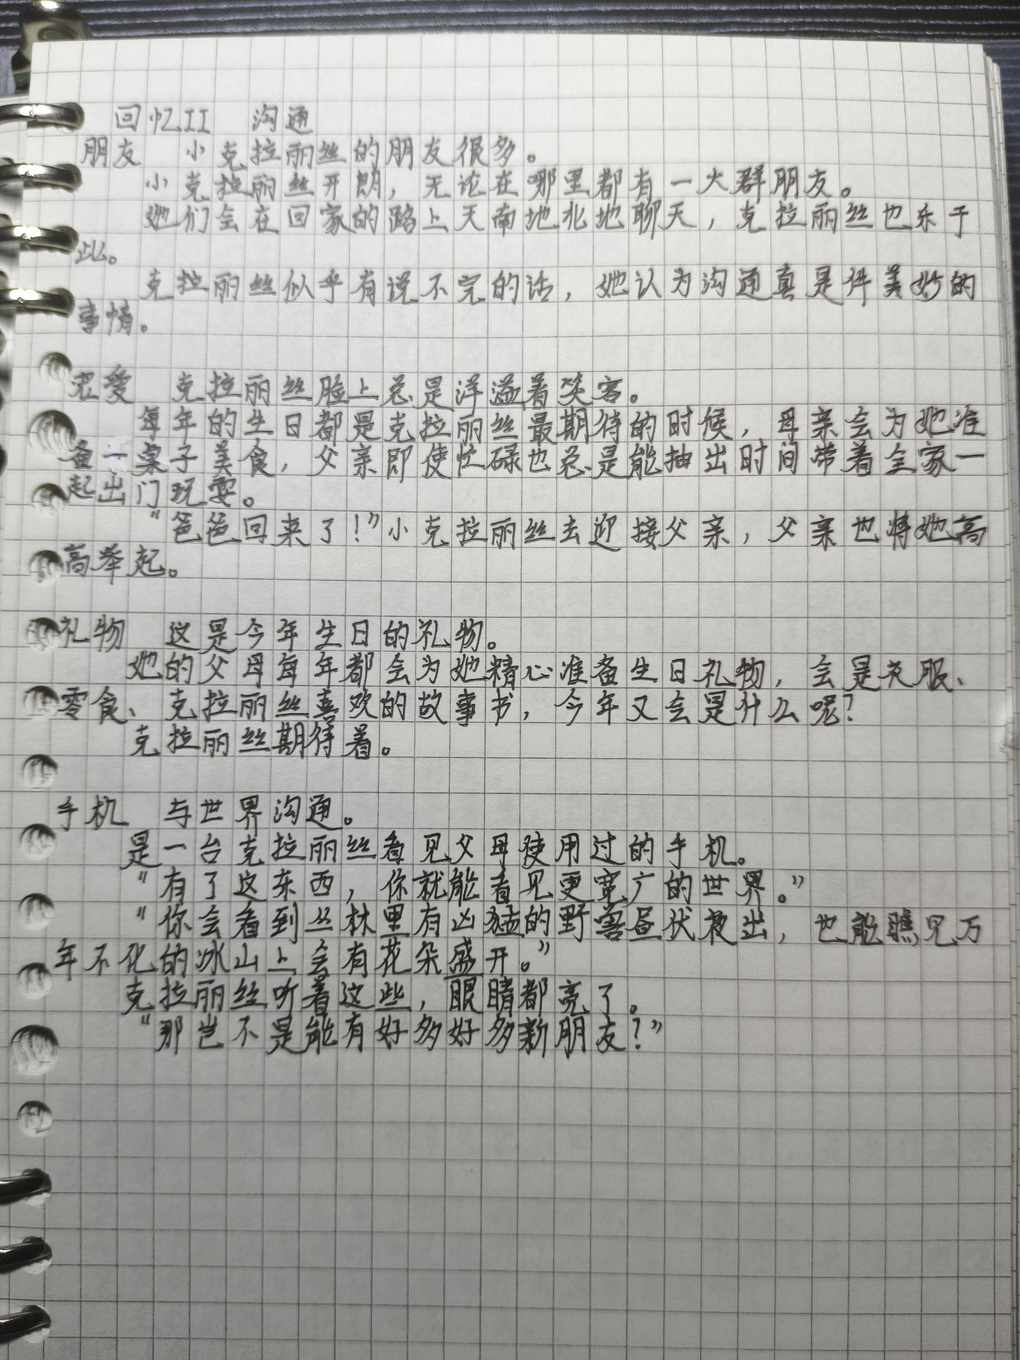 回忆II 沟通
朋友 小克拉丽丝的朋友很多。
小克拉丽丝开朗，无论在哪里都有一大群朋友。
她们会在回家的路上天南地北地聊天，克拉丽丝也乐于
此。
克拉丽丝似乎有说不完的话，她认为沟通真是件美妙的
事情。
宠爱 克拉丽丝脸上总是洋溢着笑容。
每年的生日都是克拉丽丝最期待的时候，母亲会为她准
备一桌子美食，父亲即使忙碌也总是能抽出时间带着全家一
起出门玩耍。
“爸爸回来了！”小克拉丽丝去迎接父亲，父亲也将她高
高举起。
礼物 这是今年生日的礼物。
她的父母每年都会为她精心准备生日礼物，会是衣服、
零食、克拉丽丝喜欢的故事书，今年又会是什么呢？
克拉丽丝期待着。
手机 与世界沟通。
是一台克拉丽丝看见父母使用过的手机。
“有了这东西，你就能看见更宽广的世界。”
“你会看到丛林里有凶猛的野兽昼伏夜出，也能瞧见万
年不化的冰山上会有花朵盛开。”
克拉丽丝听着这些，眼睛都亮了。
“那岂不是能有好多好多新朋友？”